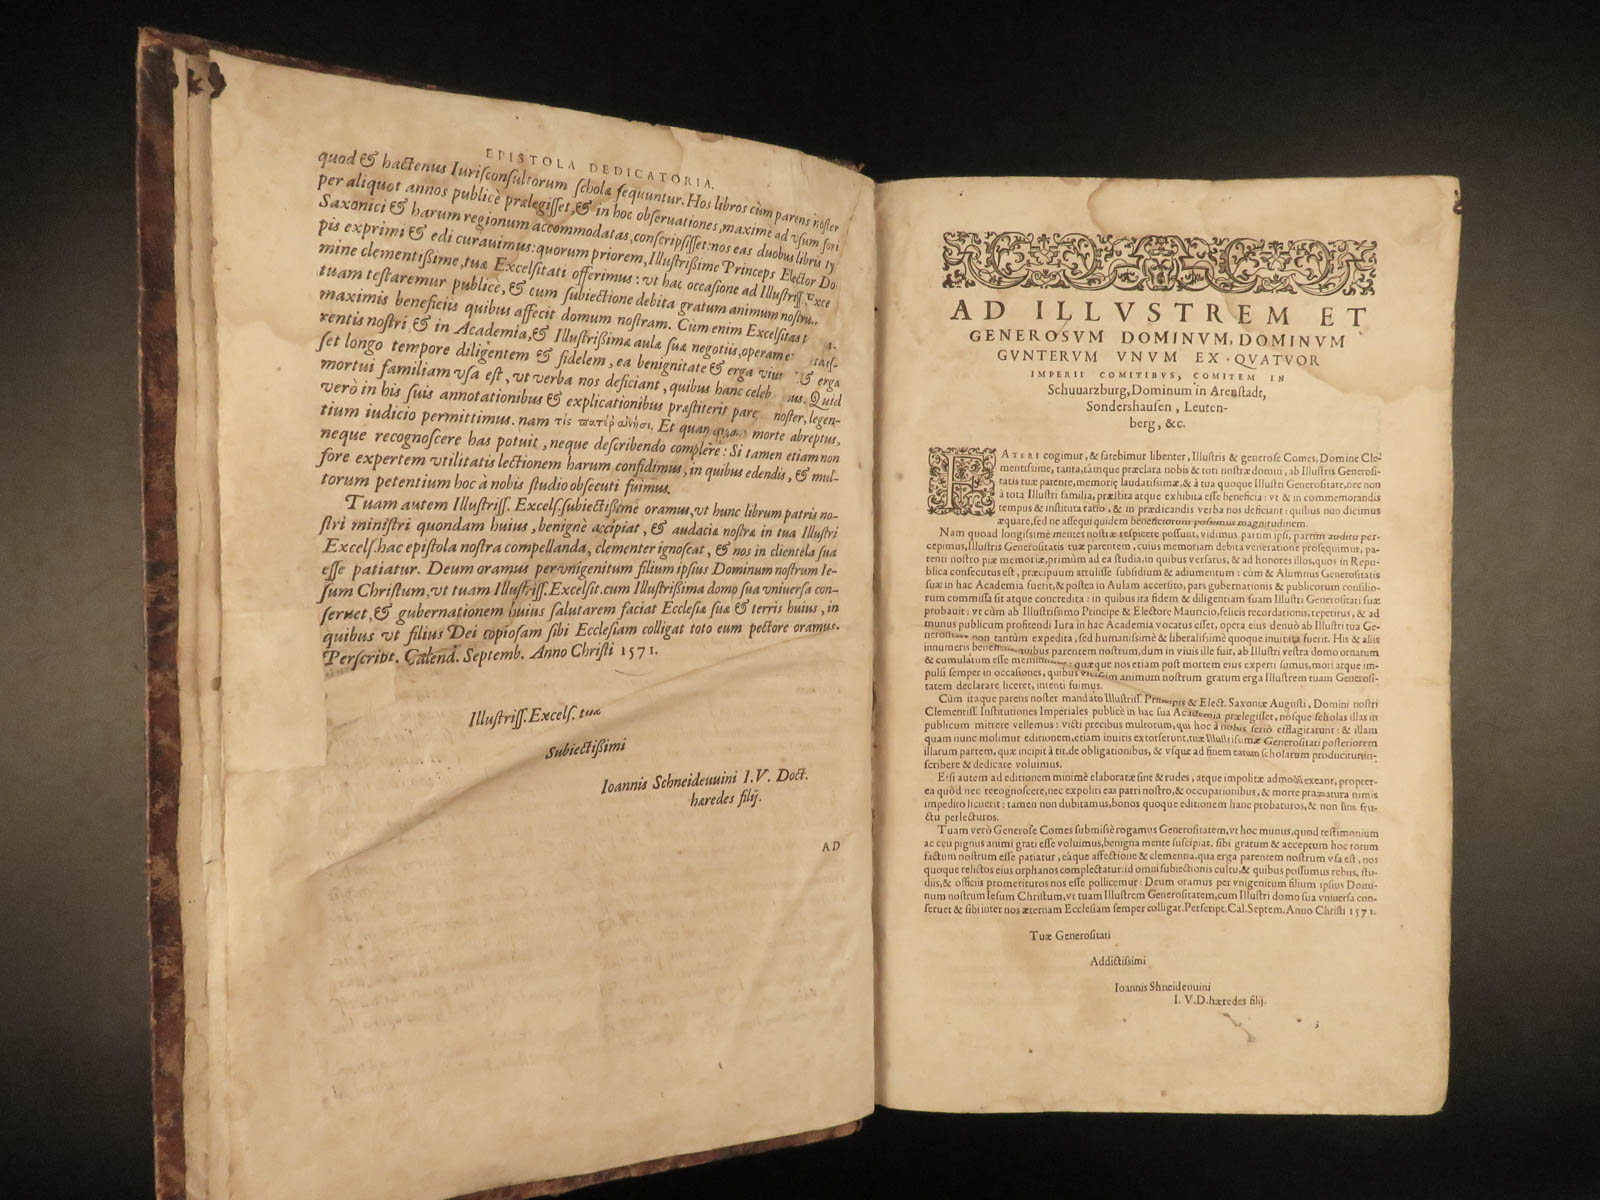 EPISTOLA DEDICATORIA.
quod & hactenus Iurisconsultorum scholæ sequuntur. Hos libros cùm parens noster
per aliquot annos publicè prælegisset, & in hoc obseruationes, maximè ad vsum fori
Saxonici & harum regionum accommodatas, conscripsisset: nos eas duobus libris ty
pis exprimi & edi curauimus: quorum priorem, Illustrißime Princeps Elector Do
mine clementißime, tuæ Excelsitati offerimus: vt hac occasione ad Illustriss. Exce
tuam testaremur publicè, & cum subiectione debita gratum animum nostru
maximis beneficiis quibus affecit domum nostram. Cùm enim Excelsitas t
rentis nostri & in Academia, & Illustrißimæ aulæ suæ negotiis, operam
set longo tempore diligentem & fidelem, ea benignitate & erga & erga
mortui familiam vsa est, vt verba nos deficiant, quibus hanc celeb us. Quid
verò in his suis annotationibus & explicationibus præstiterit pare noster, legen-
tium iudicio permittimus. nam Et quan morte abreptus,
neque recognoscere has potuit, neque describendo complere: Si tamen etiam non
fore expertem vtilitatis lectionem harum confidimus, in quibus edendis, & mul-
torum petentium hoc à nobis studio obsecuti fuimus.
Tuam autem Illustriss. Excels. subiectißimè oramus, vt hunc librum patris no-
stri ministri quondam huius, benignè accipiat, & audaciæ nostræ in tua Illustri
Excels. hac epistola nostra compellanda, clementer ignoscat, & nos in clientela sua
esse patiatur. Deum oramus per vnigenitum filium ipsius Dominum nostrum Ie-
sum Christum, vt tuam Illustriss. Excelsit. cum Illustrißima domo sua vniuersa con-
seruet, & gubernationem huius salutarem faciat Ecclesiæ suæ & terris huius, in
quibus vt filius Dei copiosam sibi Ecclesiam colligat toto eum pectore oramus.
Perscript. Calend. Septemb. Anno Christi 1571.
Illustriss. Excels. tuæ
Subiectißimi
Ioannis Schneideuuini I. V. Doct.
hæredes filij.
AD
AD ILLVSTREM ET
GENEROSVM DOMINVM, DOMINVM
GVNTERVM VNVM EX QVATVOR
IMPERII COMITIBVS, COMITEM IN
Schuuarzburg, Dominum in Arenstadt,
Sondershausen, Leuten-
berg, &c.
FATERI cogimur, & fatebimur libenter, Illustris & generose Comes, Domine Cle-
mentissime, tanta, támque præclara nobis & toti nostræ domui, ab Illustris Generosi-
tatis tuæ parente, memoriæ laudatissimæ, & à tua quoque Illustri Generositate, nec non
à tota Illustri familia, præstita atque exhibita esse beneficia: vt & in commemorandis
tempus & instituta ratio, & in prædicandis verba nos deficiant: quibus non dicimus
æquare, sed ne assequi quidem beneficiorum possumus magnitudinem.
Nam quoad longissimè mentes nostræ respicere possunt, vidimus partim ipsi, partim auditu per-
cepimus, Illustris Generositatis tuæ parentem, cuius memoriam debita veneratione prosequimur, pa-
renti nostro piæ memoriæ, primùm ad ea studia, in quibus versatus, & ad honores illos, quos in Repu-
blica consecutus est, præcipuum attulisse subsidium & adiumentum: cùm & Alumnus Generositatis
suæ in hac Academia fuerit, & postea in Aulam accersito, pars gubernationis & publicorum consilio-
rum commissa sit atque concredita: in quibus ita fidem & diligentiam suam Illustri Generositati suæ
probauit: vt cùm ab Illustrissimo Principe & Electore Mauricio, felicis recordationis, repetitus, & ad
munus publicum profitendi Iura in hac Academia vocatus esset, opera eius denuò ab Illustri tua Ge-
nerositate non tantùm expedita, sed humanissimè & liberalissimè quoque inuitata fuerit. His & aliis
innumeris quibus parentem nostrum, dum in viuis ille fuit, ab Illustri vestra domo ornatum
& cumulatum esse quæque nos etiam post mortem eius experti sumus, mori atque im-
pulsi semper in occasiones, quibus animum nostrum gratum erga Illustrem tuam Generosi-
tatem declarare liceret, intenti fuimus.
Cùm itaque parens noster mandato Illustriss. Principis & Elect. Saxoniæ Augusti, Domini nostri
Clementiss. Institutiones Imperiales publicè in hac sua Academia prælegisset, nósque scholas illas in
publicum mittere vellemus: victi precibus multorum, qui hoc à nobis seriò efflagitarunt: & illam
quam nunc molimur editionem, etiam inuitis extorserunt, tuæ Illustrissimæ Generositati posteriorem
illarum partem, quæ incipit à tit. de obligationibus, & vsque ad finem earum scholarum producitur, in-
scribere & dedicare voluimus.
Etsi autem ad editionem minimè elaboratæ sint & rudes, atque impolitæ admodũ exeant, propter-
ea quòd nec recognoscere, nec expoliri eas patri nostro, & occupationibus, & morte præmatura nimis
impedito licuerit: tamen non dubitamus, bonos quoque editionem hanc probaturos, & non sine fru-
ctu perlecturos.
Tuam verò Generose Comes submissè rogamus Generositatem, vt hoc munus, quod testimonium
ac ceu pignus animi grati esse voluimus, benigna mente suscipiat, sibi gratum & acceptum hoc totum
factum nostrum esse patiatur, eáque affectione & clementia, qua erga parentem nostrum vsa est, nos
quoque relictos eius orphanos complectatur: id omni subiectionis cultu, & quibus possumus rebus, stu-
diis, & officiis promerituros nos esse pollicemur: Deum oramus per vnigenitum filium ipsius Domi-
num nostrum Iesum Christum, vt tuam Illustrem Generositatem, cum Illustri domo sua vniuersa con-
seruet & sibi inter nos æternam Ecclesiam semper colligat. Perscript. Cal. Septem. Anno Christi 1571.
Tuæ Generositati
Addictissimi
Ioannis Shneideuuini
I. V. D. hæredes filij.